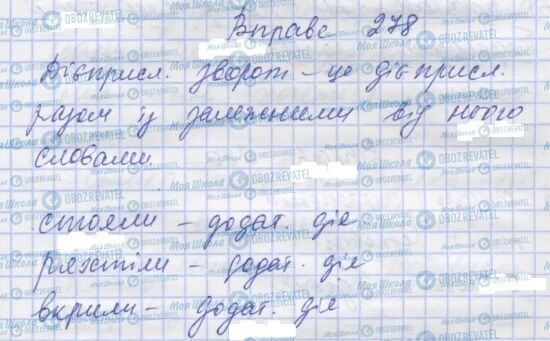 Вправа 278
Дієприсл. зворот – це дієприсл.
разом із залежними від нього
словами.
стояли – додат. дія
ряхтіли – додат. дія
вкрили – додат. дія